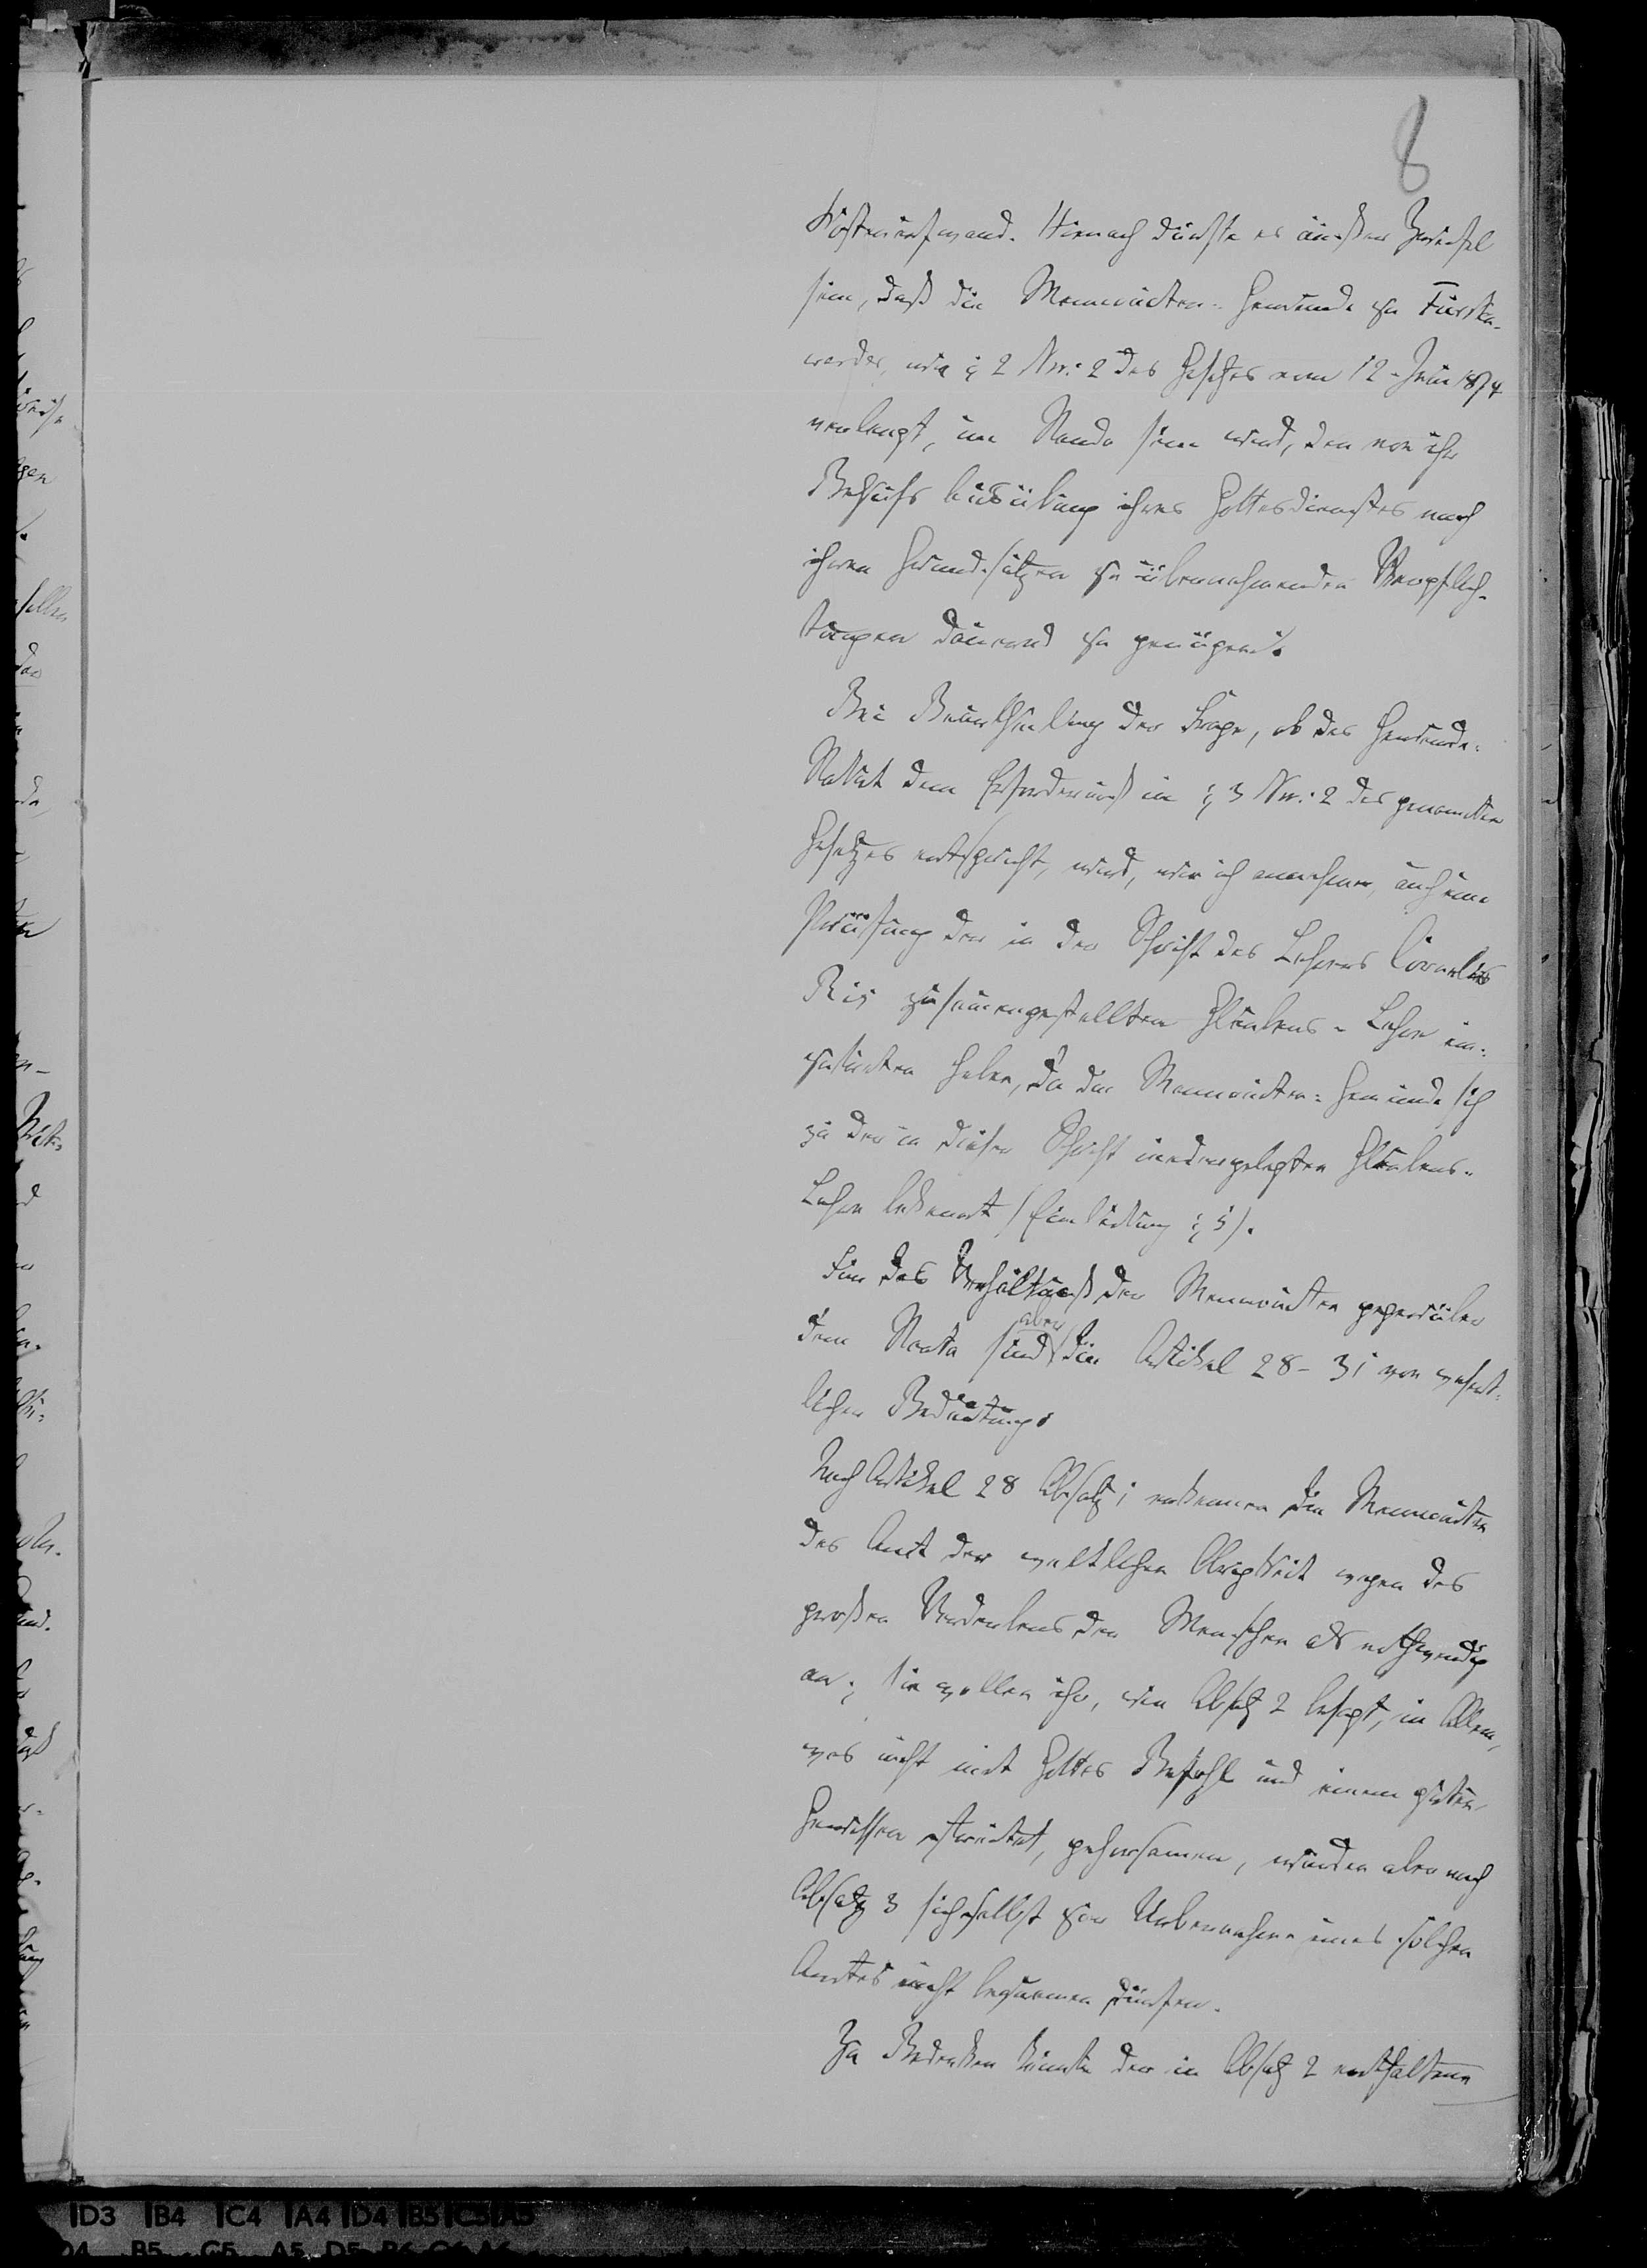 8
Kostenaufwand. Hienach dürfte es außer Zweifel
sein, daß die Mennoniten-Gemeinde zu Fürsten-
werder, wie § 2 Nr: 2 des Gesetzes vom 12. Juni 1874
verlangt, im Stande sein wird, den von ihr
Behufs Ausübung ihres Gottesdienstes nach
ihren Grundsätzen zu übernehmenden Verpflich-
tungen dauernd zu genügen.
Bei Beurtheilung der Frage, ob das Gemeinde-
Statut dem Erforderniß in § 3 Nr: 2 des genannten
Gesetzes entspricht, wird, wie ich annehme, auch eine
Prüfung der in der Schrift des Lehrers Cornelis
Ris zusammengestellten Glaubens-Lehre ein-
zutreten haben, da die Mennoniten-Gemeinde sich
zu der in dieser Schrift niedergelegten Glaubens-
Lehre bekennt (Einleitung § 5).
Für das Verhältniß der Mennoniten gegenüber
dem Staate sind aber die Artikel 28-31 von wesent-
licher Bedeutung.
Nach Artikel 28 Absatz 1 erkennen die Mennoniten
das Amt der weltlichen Obrigkeit wegen des
großen Verderbens der Menschen als nothwendig
an; sie wollen ihr, wie Absatz 2 besagt, in Allem,
was nicht mit Gottes Befehl und einem guten
Gewissen streitet, gehorsamen, würden aber nach
Absatz 3 sich selbst zur Uebernahme eines solchen
Amtes nicht bequemen dürfen.
Zu Bedenken könnte der in Absatz 2 enthaltene